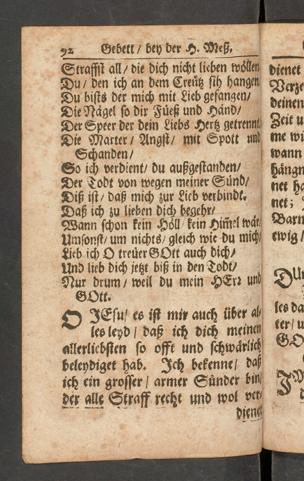 92 Gebett / bey der H. Meß,
Straffst all / die dich nicht lieben wöllen
Du / den ich an dem Creütz sih hangen
Du bists der mich mit Lieb gefangen /
Die Nägel so dir Füeß und Händ /
Der Speer der dein Liebs Hertz getrennt
Die Marter / Angst / mit Spott und
Schanden /
So ich verdient / du außgestanden /
Der Todt von wegen meiner Sünd /
Diß ist / daß mich zur Lieb verbindt.
Daß ich zu lieben dich begehr /
Wann schon kein Höll / kein Him̃el wär
Umsonst / um nichts / gleich wie du mich /
Lieb ich O treüer GOtt auch dich /
Und lieb dich jetzt biß in den Todt /
Nur drum / weil du mein HErr und
GOtt.
O JEsu / es ist mir auch über al-
les leyd / daß ich dich meinen
allerliebsten so offt und schwärlich
beleydiget hab. Ich bekenne / daß
ich ein grosser / armer Sünder bin /
der alle Straff recht und wol ver-
dienet
dienet
Verze
deinen
Zeit u
me wi
wann
hängn
net ha
net;
Barm
ewig /
les da
ter / u